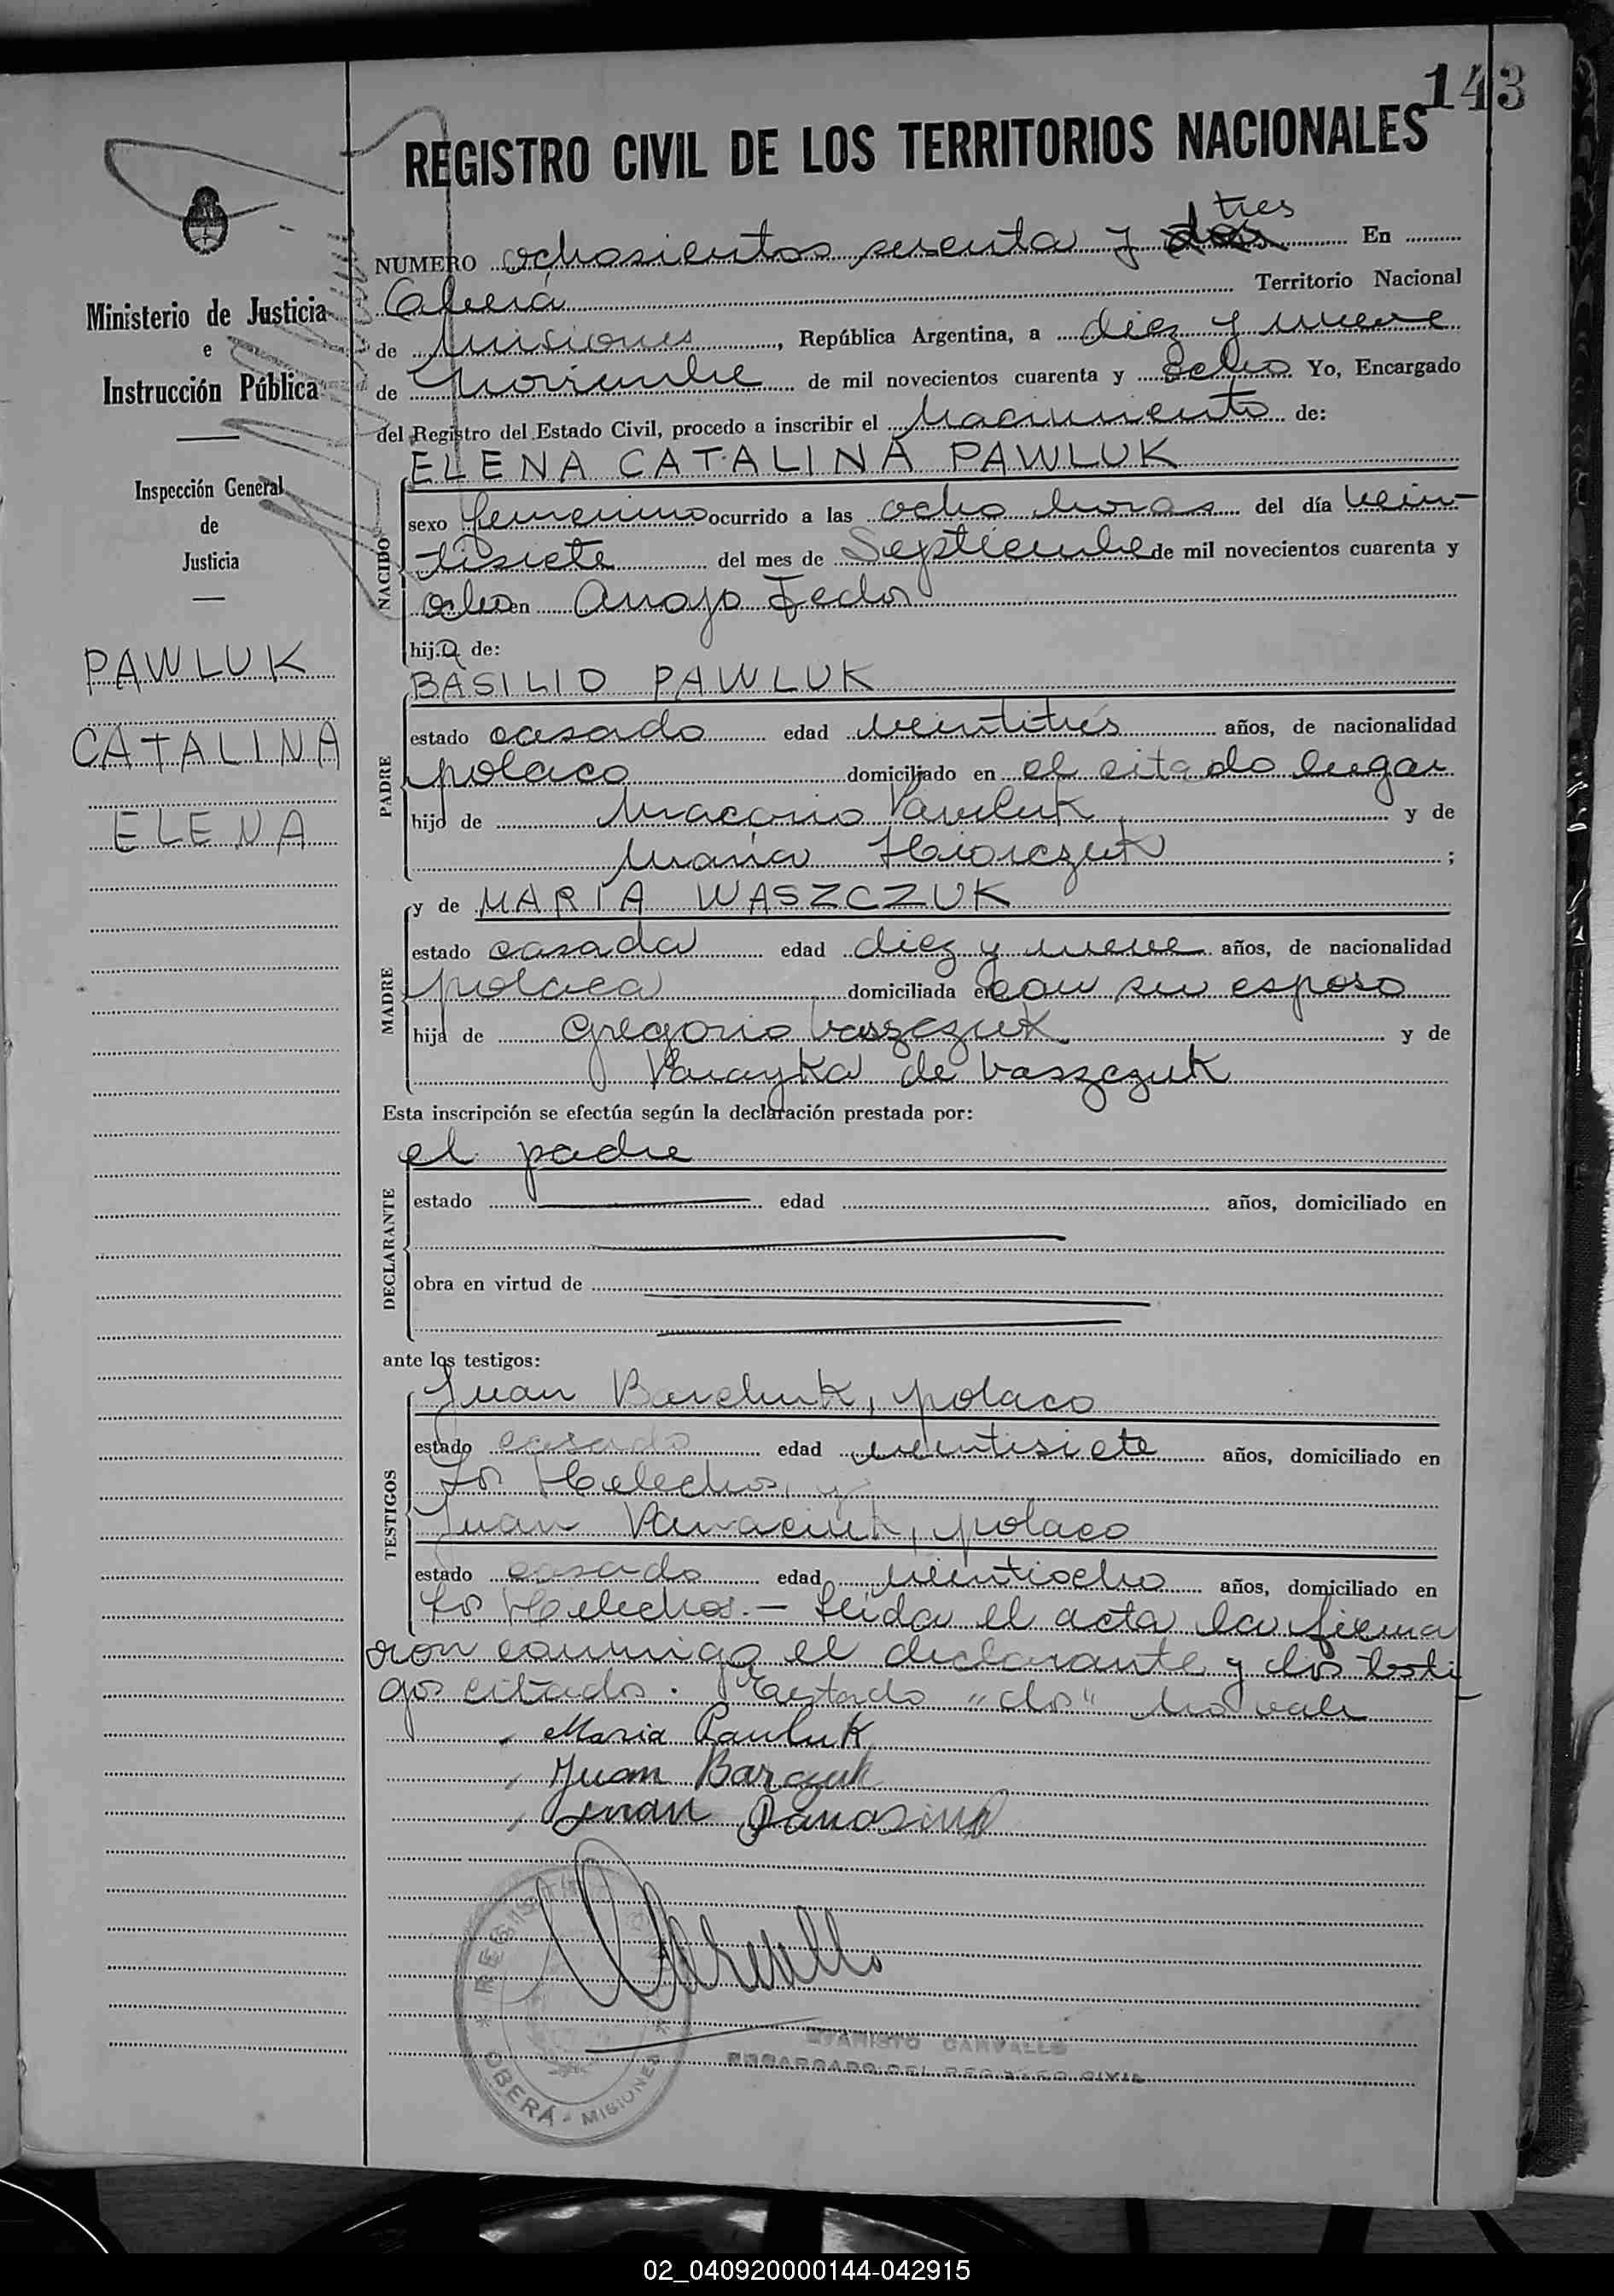 143
REGISTRO CIVIL DE LOS TERRITORIOS NACIONALES
tres
NUMERO ochosientos sesenta y dos En
Oberá Territorio Nacional
de Misiones, República Argentina, a diez y nueve
de Noviembre de mil novecientos cuarenta y ocho Yo, Encargado
del Registro del Estado Civil, procedo a inscribir el Nacimiento de:
ELENA CATALINA PAWLUK
NACIDO
sexo femenino ocurrido a las ocho horas del día vein-
tisiete del mes de Septiembre de mil novecientos cuarenta y
ocho en Arroyo Fedor
hija de:
BASILIO PAWLUK
PADRE
estado casado edad veintitrés años, de nacionalidad
polaco domiciliado en el citado lugar
hijo de Macario Pawluk y de
María ;
y de MARIA WASZCZUK
MADRE
estado casada edad diez y nueve años, de nacionalidad
polaca domiciliada en con su esposo
hija de Gregorio Vaszczuk y de
de Vaszczuk
Esta inscripción se efectúa según la declaración prestada por:
el padre
DECLARANTE
estado edad años, domiciliado en
obra en virtud de
ante los testigos:
Juan polaco
TESTIGOS
estado casado edad veintisiete años, domiciliado en
Los Helechos, y
Juan polaco
estado casado edad veintiocho años, domiciliado en
Los Helechos.- Leída el acta la firma
ron conmigo el declarante y los testi
gos citados. Testado "dos" no vale
Maria Pauluk
Juan Barczuk
Juan Panasiuk
REGISTRO
OBERÁ - MISIONES
EVARISTO CARVALLO
ENCARGADO DEL REGISTRO CIVIL
Ministerio de Justicia
e
Instrucción Pública
Inspección General
de
Justicia
PAWLUK
CATALINA
ELENA
02_040920000144-042915